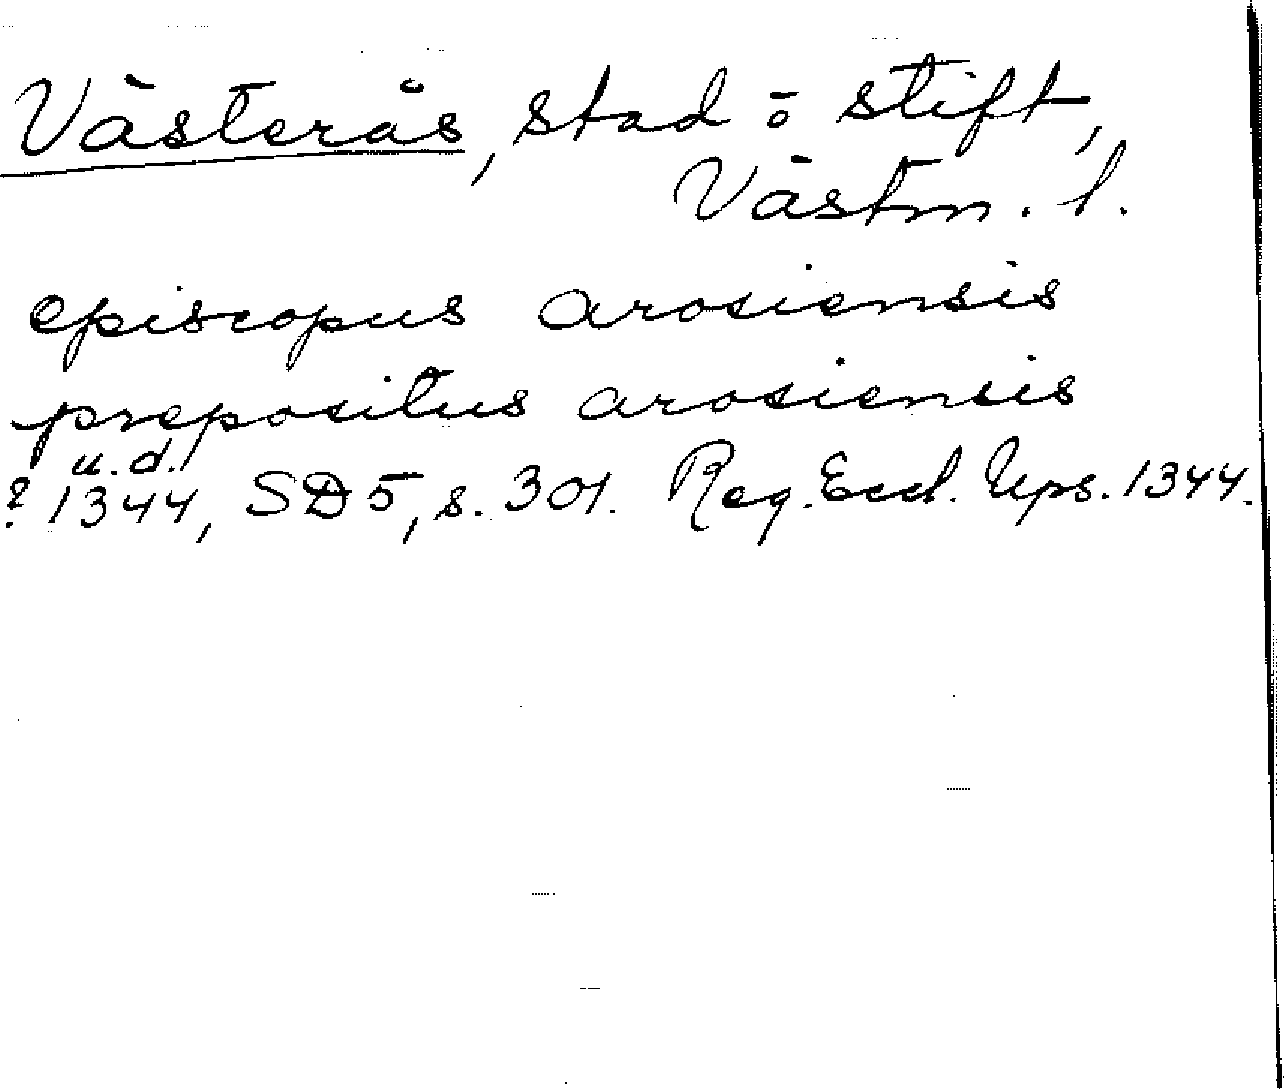 Västerås, stad o stift,
Västm. l.
episcopus arosiensis
prepositus arosiensis
u.d.
? 1344, SD5, s. 301. Reg. Eccl. Ups. 1344.